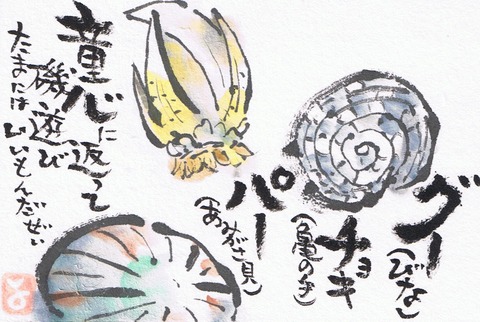 グー(びな)
チョキ(亀の手)
パー(あみがさ貝)
童心に返って
磯遊び
たまにはいいもんだぜい